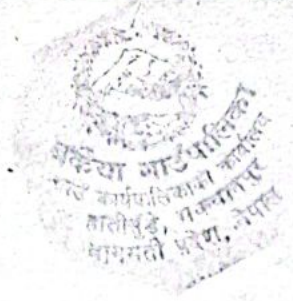 बकैया गाउँपालिका
गाउँ कार्यपालिकाको कार्यालय
हात्तीसुँडे, मकवानपुर
बागमती प्रदेश, नेपाल